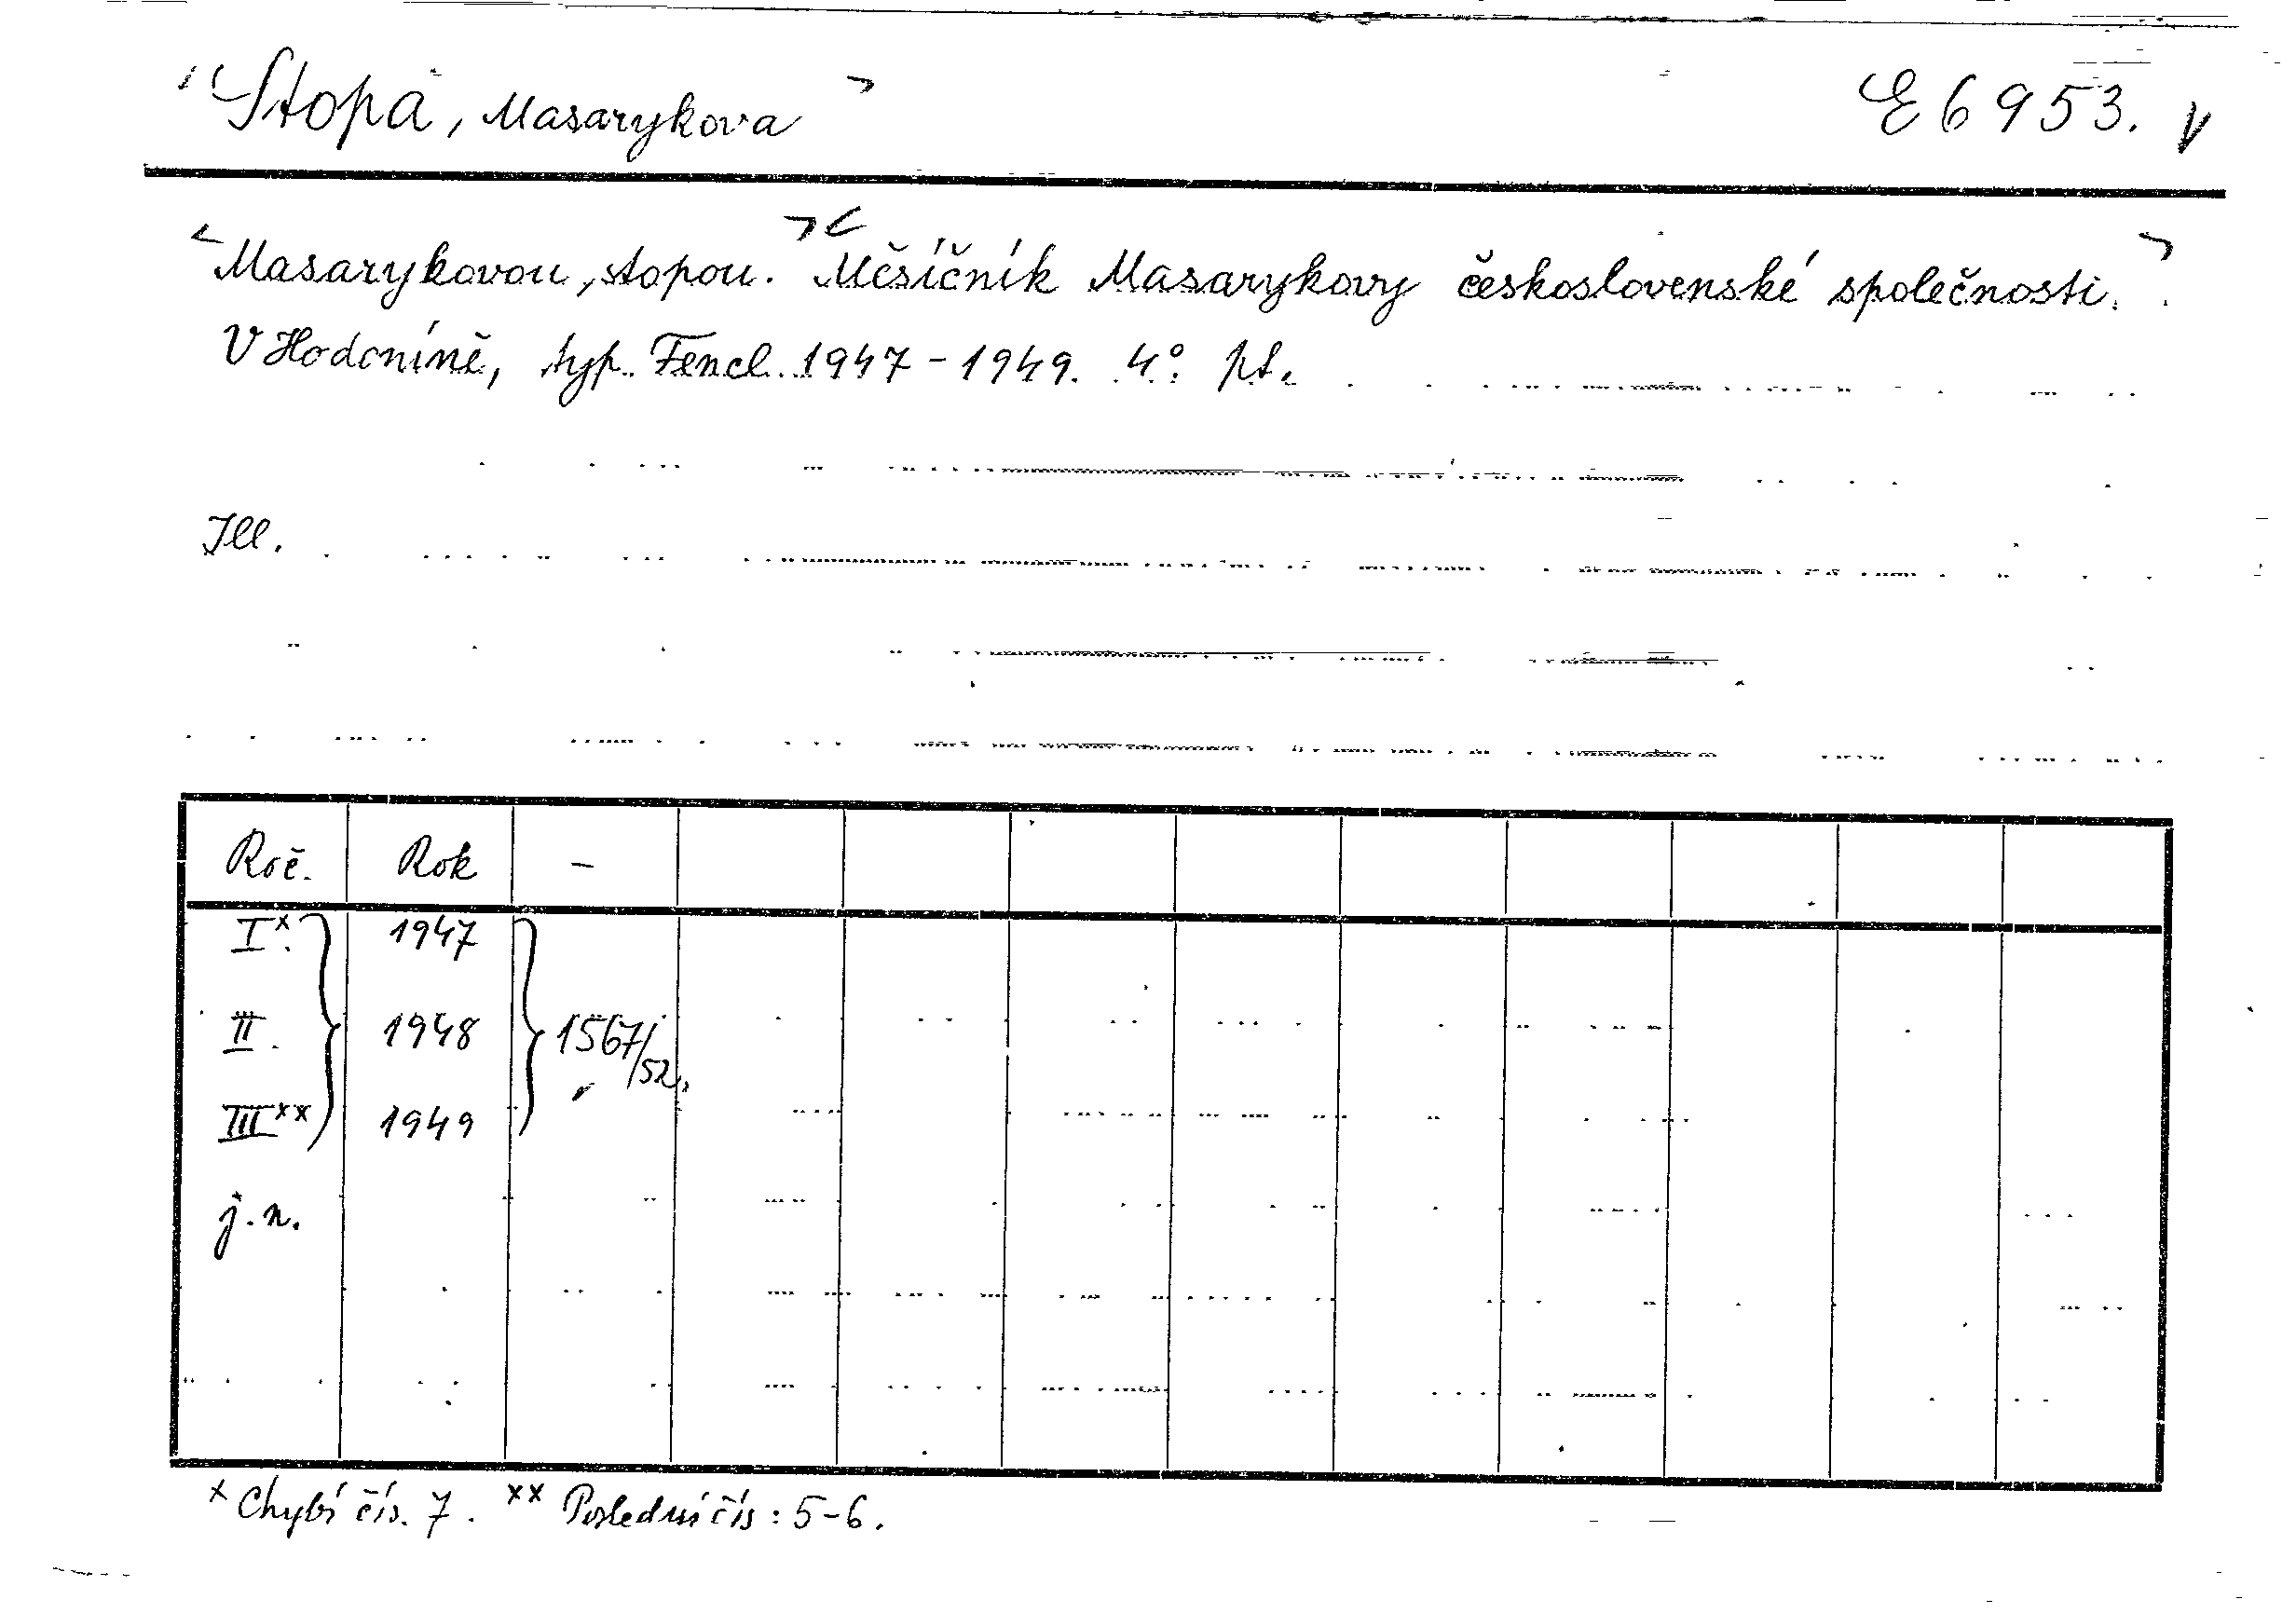 Stopa, Masarykova E 6953. V
Masarykovou stopou. Měsíčník Masarykovy československé společnosti.
V Hodoníně, typ. Fencl. 1947-1949. 4°. pt.
Ill.
Roč. Rok -
I×. 1947
II. 1948 1567/52.
III×× 1949
j. n.
× Chybí čís. 7. ×× Poslední čís: 5-6.